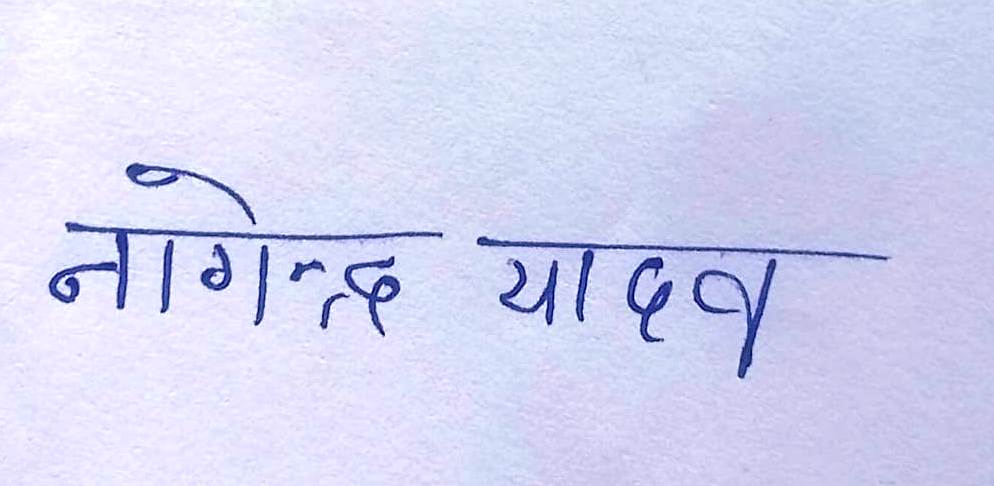 नागेन्द्र यादव